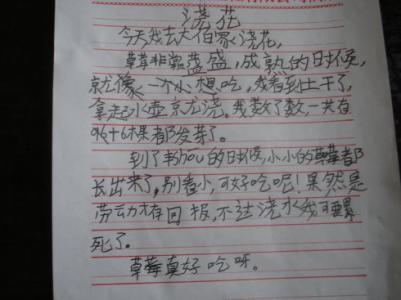 浇花
今天我去大伯家浇花,
草莓非常 成熟的时候,
就像一个小 想吃,我看到土干了,
拿起水壶京尤浇。我数了数,一共有
棵都发芽了。
到了 的时候,小小的草莓都
长出来了,别看小,可好吃呢!果然是
劳动才有回报,不过浇水我可累
死了。
草莓真好吃呀。